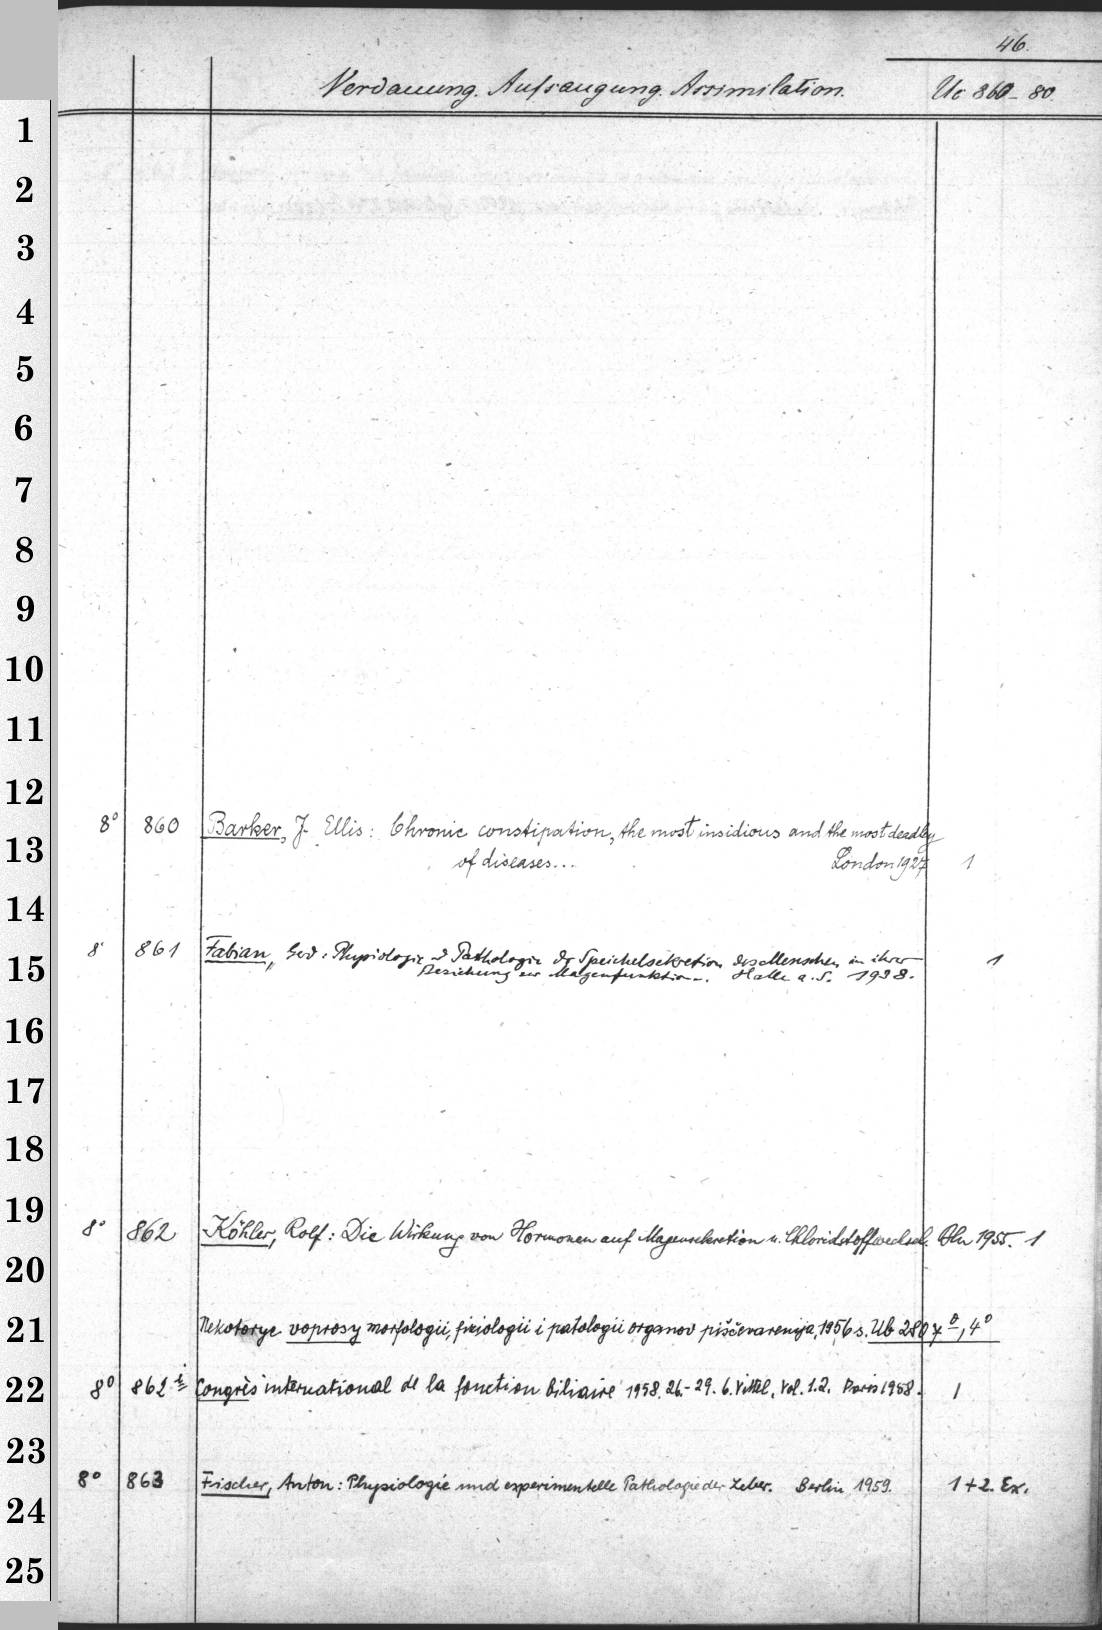 46.
Verdauung. Aufsaugung. Assimilation. Uc 860-80
1
2
3
4
5
6
7
8
9
10
11
12
8° 860 Barker, J. Ellis: Chronic constipation, the most insidious and the most deadly
13
of diseases... London 1927 1
14
8° 861 Fabian, Gerd: Physiologie u. Pathologie der Speichelsekretion des Menschen in ihrer 1
15
Beziehung zur Magenfunktion. Halle a. S. 1938.
16
17
18
19
8° 862 Köhler, Rolf: Die Wirkung von Hormonen auf Magensekretion u. Chloridstoffwechsel. Bln 1955. 1
20
21
Nekotorye voprosy morfologii, fiziologii i patologii organov piščevarenija, 1956 s. Ub 2807°, 4°
22
8° 862 i Congrès international de la fonction biliaire 1958. 26.-29. 6. Vittel, Vol. 1.2. Paris 1958. 1
23
8° 863 Fischer, Anton: Physiologie und experimentelle Pathologie der Leber. Berlin 1959. 1+2. Ex.
24
25